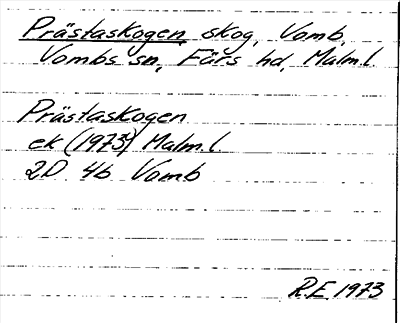 Prästaskogen, skog, Vomb,
Vombs sn, Färs hd, Malm.l.
Prästaskogen
ek (1973) Malm.l.
2D 4b Vomb
R.E. 1973